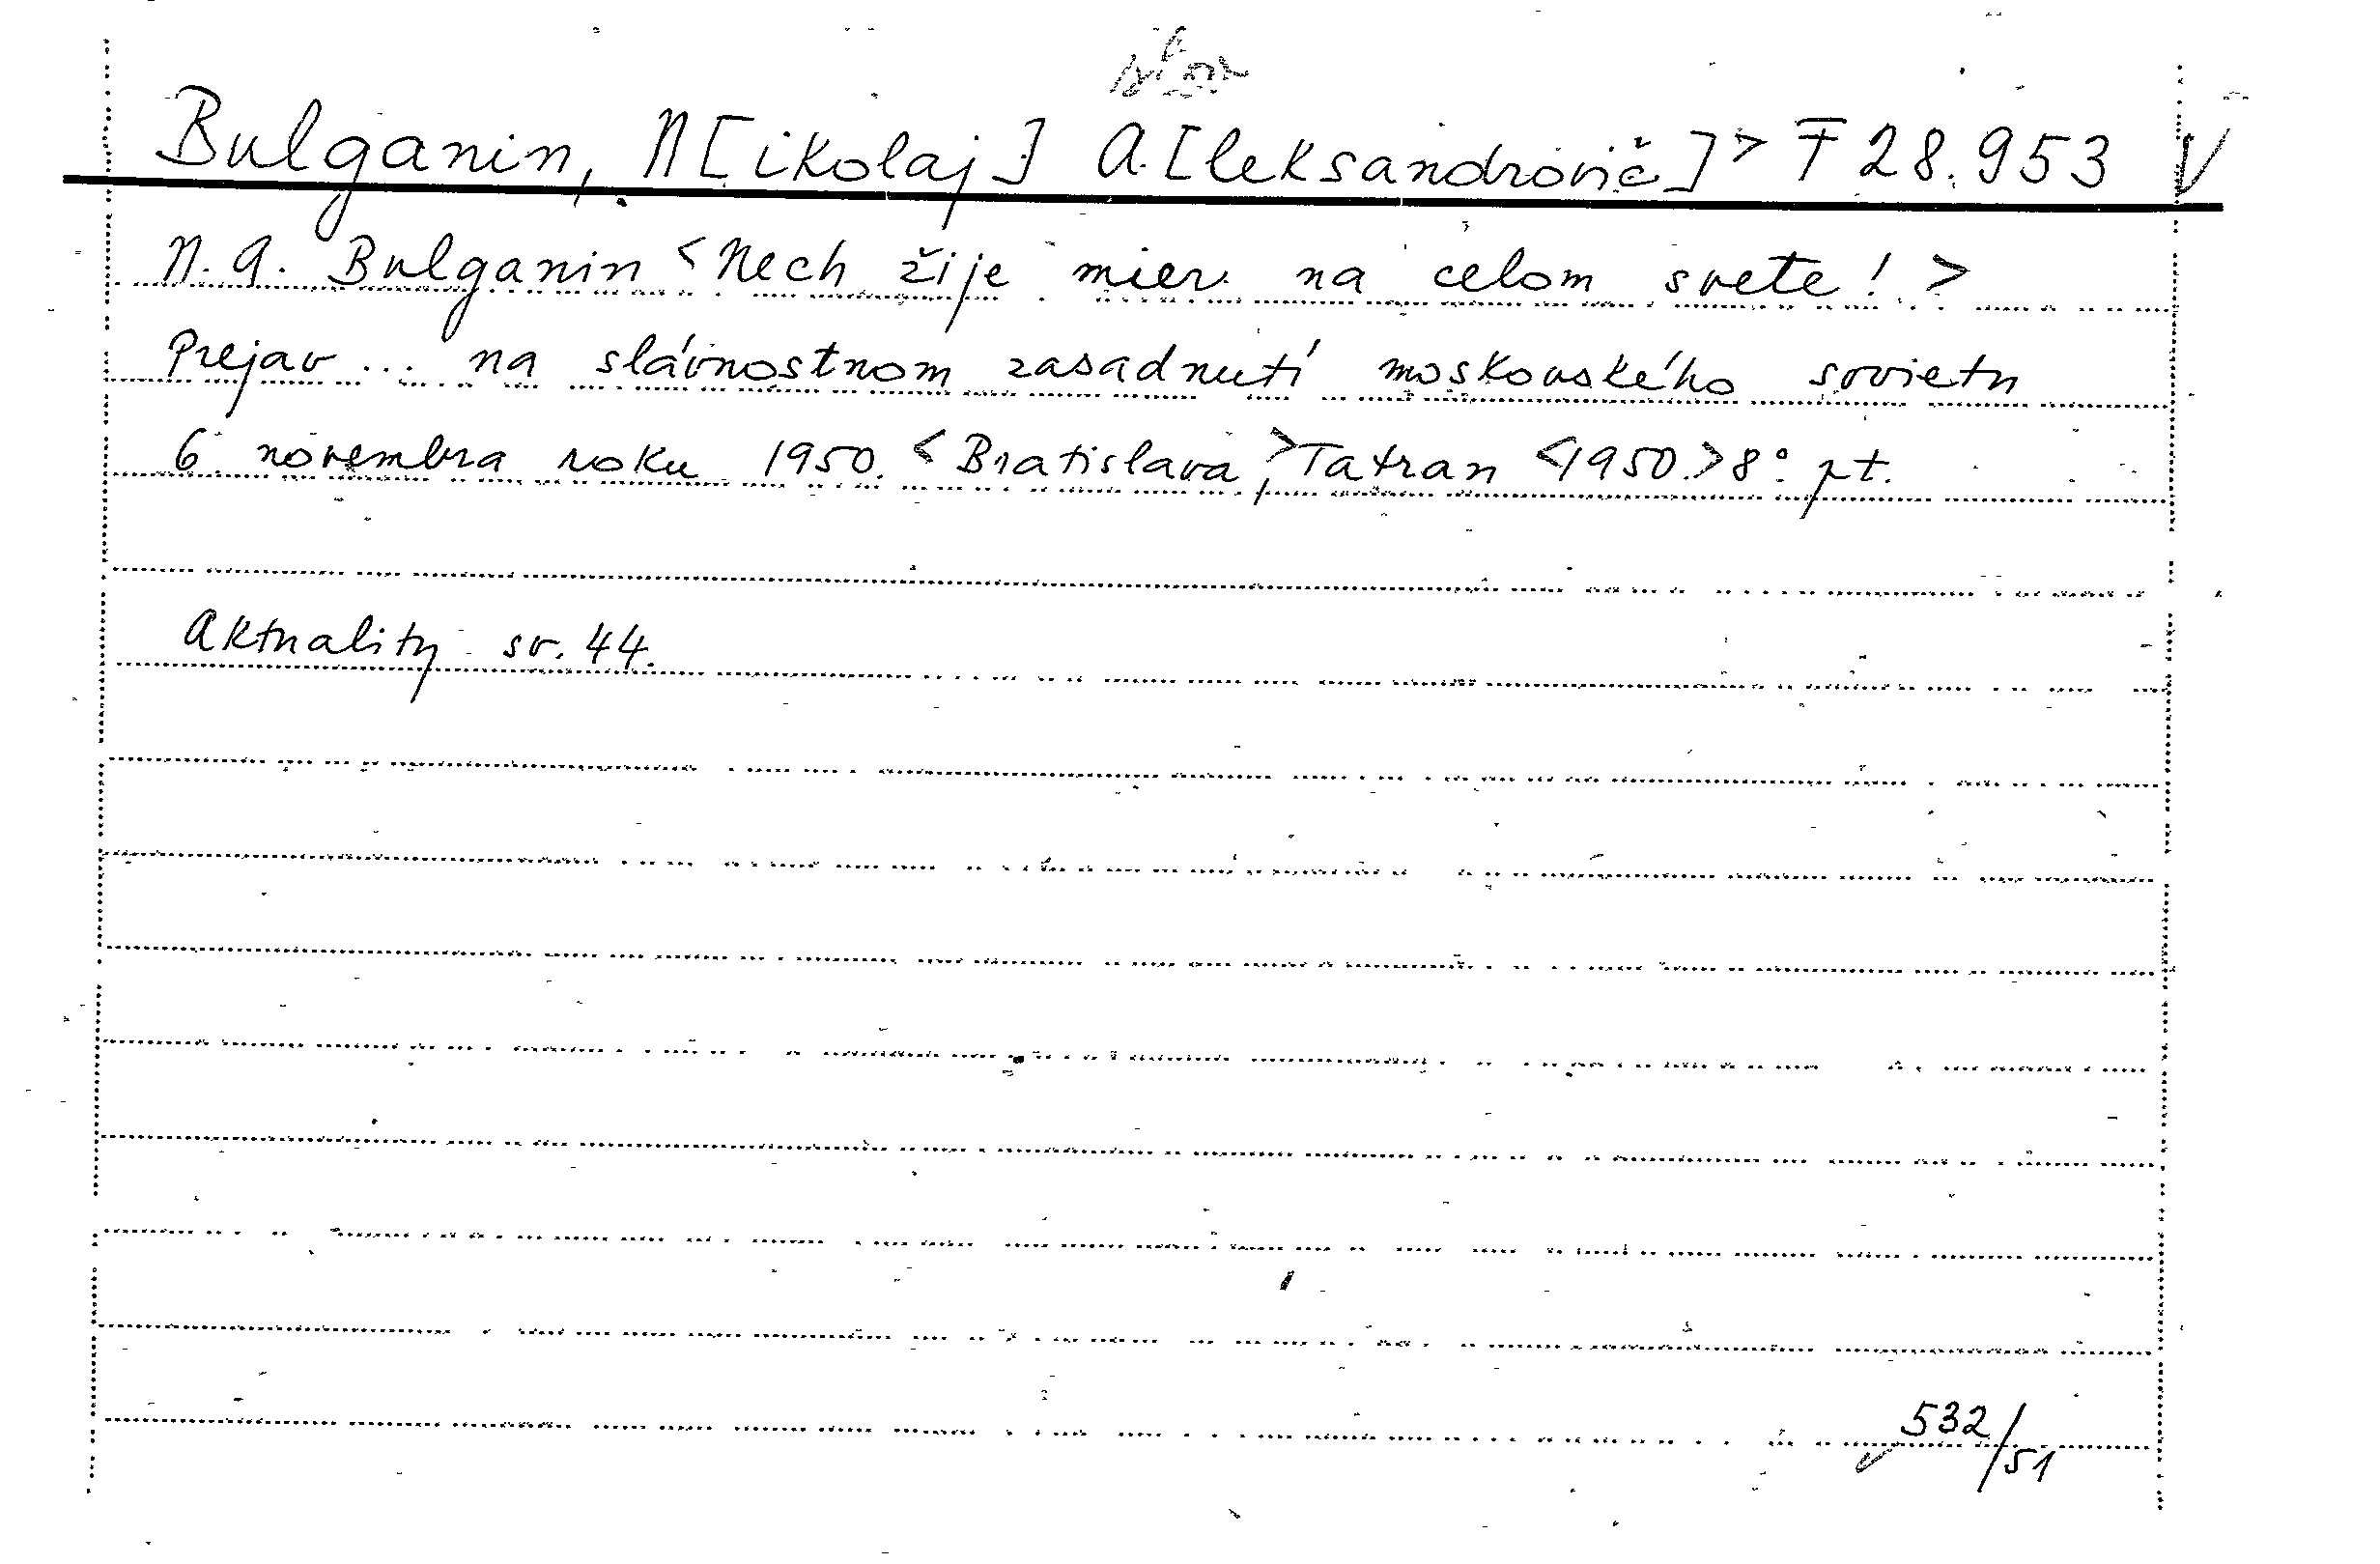 Bulganin, N[ikolaj] A.[leksandrovič] > F 28.953 V
N. A. Bulganin <Nech žije mier na celom svete! >
Prejav ... na slávnostnom zasadnutí moskovského sovietu
6. novembra roku 1950. <Bratislava,> Tatran <1950.> 8° pt.
Aktuality sv. 44.
532/51